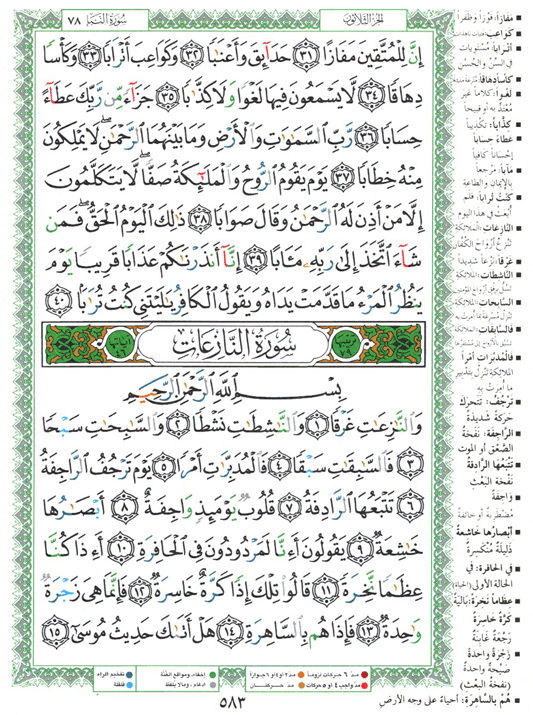 سورة النبإ ٧٨
الجزء الثلاثون
إِنَّ لِلْمُتَّقِينَ مَفَازًا ٣١ حَدَائِقَ وَأَعْنَابًا ٣٢ وَكَوَاعِبَ أَتْرَابًا ٣٣ وَكَأْسًا
دِهَاقًا ٣٤ لَّا يَسْمَعُونَ فِيهَا لَغْوًا وَلَا كِذَّابًا ٣٥ جَزَاءً مِّن رَّبِّكَ عَطَاءً
حِسَابًا ٣٦ رَّبِّ السَّمَاوَاتِ وَالْأَرْضِ وَمَا بَيْنَهُمَا الرَّحْمَٰنِ لَا يَمْلِكُونَ
مِنْهُ خِطَابًا ٣٧ يَوْمَ يَقُومُ الرُّوحُ وَالْمَلَائِكَةُ صَفًّا لَّا يَتَكَلَّمُونَ
إِلَّا مَنْ أَذِنَ لَهُ الرَّحْمَٰنُ وَقَالَ صَوَابًا ٣٨ ذَٰلِكَ الْيَوْمُ الْحَقُّ فَمَن
شَاءَ اتَّخَذَ إِلَىٰ رَبِّهِ مَآبًا ٣٩ إِنَّا أَنذَرْنَاكُمْ عَذَابًا قَرِيبًا يَوْمَ
يَنظُرُ الْمَرْءُ مَا قَدَّمَتْ يَدَاهُ وَيَقُولُ الْكَافِرُ يَا لَيْتَنِي كُنتُ تُرَابًا ٤٠
ترتيبها ٧٩ سورة النازعات آياتها ٤٦
بِسْمِ اللَّهِ الرَّحْمَٰنِ الرَّحِيمِ
وَالنَّازِعَاتِ غَرْقًا ١ وَالنَّاشِطَاتِ نَشْطًا ٢ وَالسَّابِحَاتِ سَبْحًا
٣ فَالسَّابِقَاتِ سَبْقًا ٤ فَالْمُدَبِّرَاتِ أَمْرًا ٥ يَوْمَ تَرْجُفُ الرَّاجِفَةُ
٦ تَتْبَعُهَا الرَّادِفَةُ ٧ قُلُوبٌ يَوْمَئِذٍ وَاجِفَةٌ ٨ أَبْصَارُهَا
خَاشِعَةٌ ٩ يَقُولُونَ أَءِنَّا لَمَرْدُودُونَ فِي الْحَافِرَةِ ١٠ أَءِذَا كُنَّا
عِظَامًا نَّخِرَةً ١١ قَالُوا تِلْكَ إِذًا كَرَّةٌ خَاسِرَةٌ ١٢ فَإِنَّمَا هِيَ زَجْرَةٌ
وَاحِدَةٌ ١٣ فَإِذَا هُم بِالسَّاهِرَةِ ١٤ هَلْ أَتَاكَ حَدِيثُ مُوسَىٰ ١٥
مفازا: فوزا وظفرا
كواعب:
أترابا: مستويات
في السن والحسن
كأسا دهاقا:
لغوا: كلاما غير
معتد به أو قبيحا
كذابا: تكذيبا
عطاء حسابا
إحسانا كافيا
مآبا: مرجعا
بالإيمان والطاعة
كنت ترابا: فلم
أبعث في هذا اليوم
النازعات: الملائكة
تنزع أرواح الكفار
غرقا: نزعا شديدا
الناشطات: الملائكة
السابحات: الملائكة
فالسابقات: الملائكة
فالمدبرات أمرا
الملائكة تنزل بتدبير
ما أمرت به
ترجف: تتحرك
حركة شديدة
الراجفة: نفخة
الصعق أو الموت
تتبعها الرادفة
نفخة البعث
واجفة
مضطربة أو خائفة
أبصارها خاشعة
ذليلة منكسرة
في الحافرة:
الحالة الأولى (الحياة)
عظاما نخرة: بالية
كرة خاسرة
رجعة غابنة
زجرة واحدة
صيحة واحدة
(نفخة البعث)
هم بالساهرة: أحياء على وجه الأرض
مد ٦ حركات لزوما مد ٢ أو ٤ أو ٦ جوازا إخفاء، ومواقع الغنة تفخيم الراء
مد واجب ٤ أو ٥ حركات مد حركتان إدغام، وما لا يلفظ قلقلة
٥٨٣